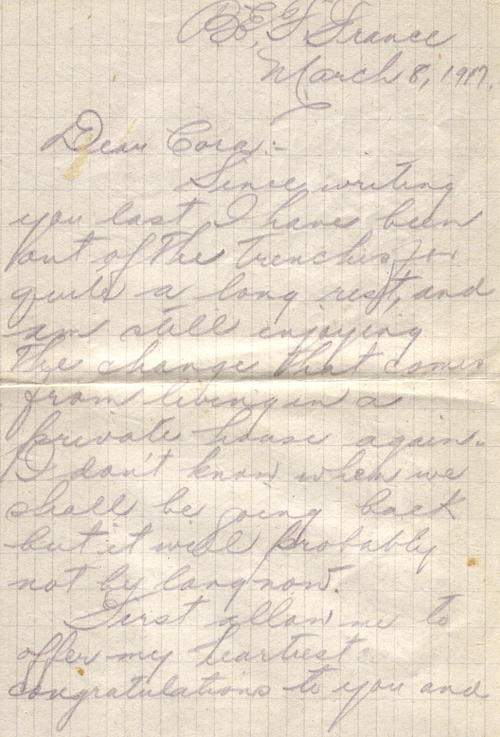 B.E.F. France
March 8, 1917.
Dear Cora:-
Since writing
you last I have been
out of the trenches for
quite a long rest, and
am still enjoying
the change that comes
from living in a
private house again.
I don't know when we
shall be going back
but it will probably
not be long now.
First allow me to
offer my heartiest
congratulations to you and